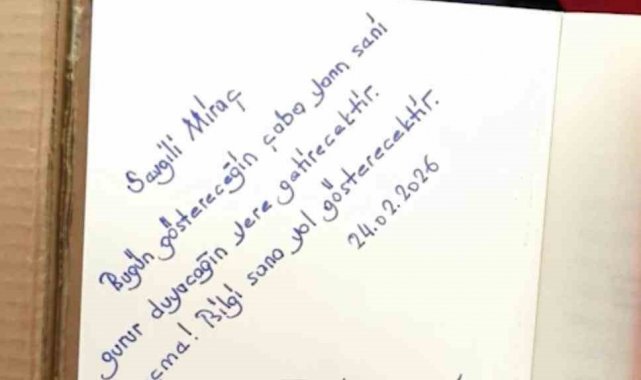 Sevgili Miraç
Bugün göstereceğin çaba yarın seni
gurur duyacağın yere getirecektir.
cma! Bilgi sana yol gösterecektir.
24.02.2026